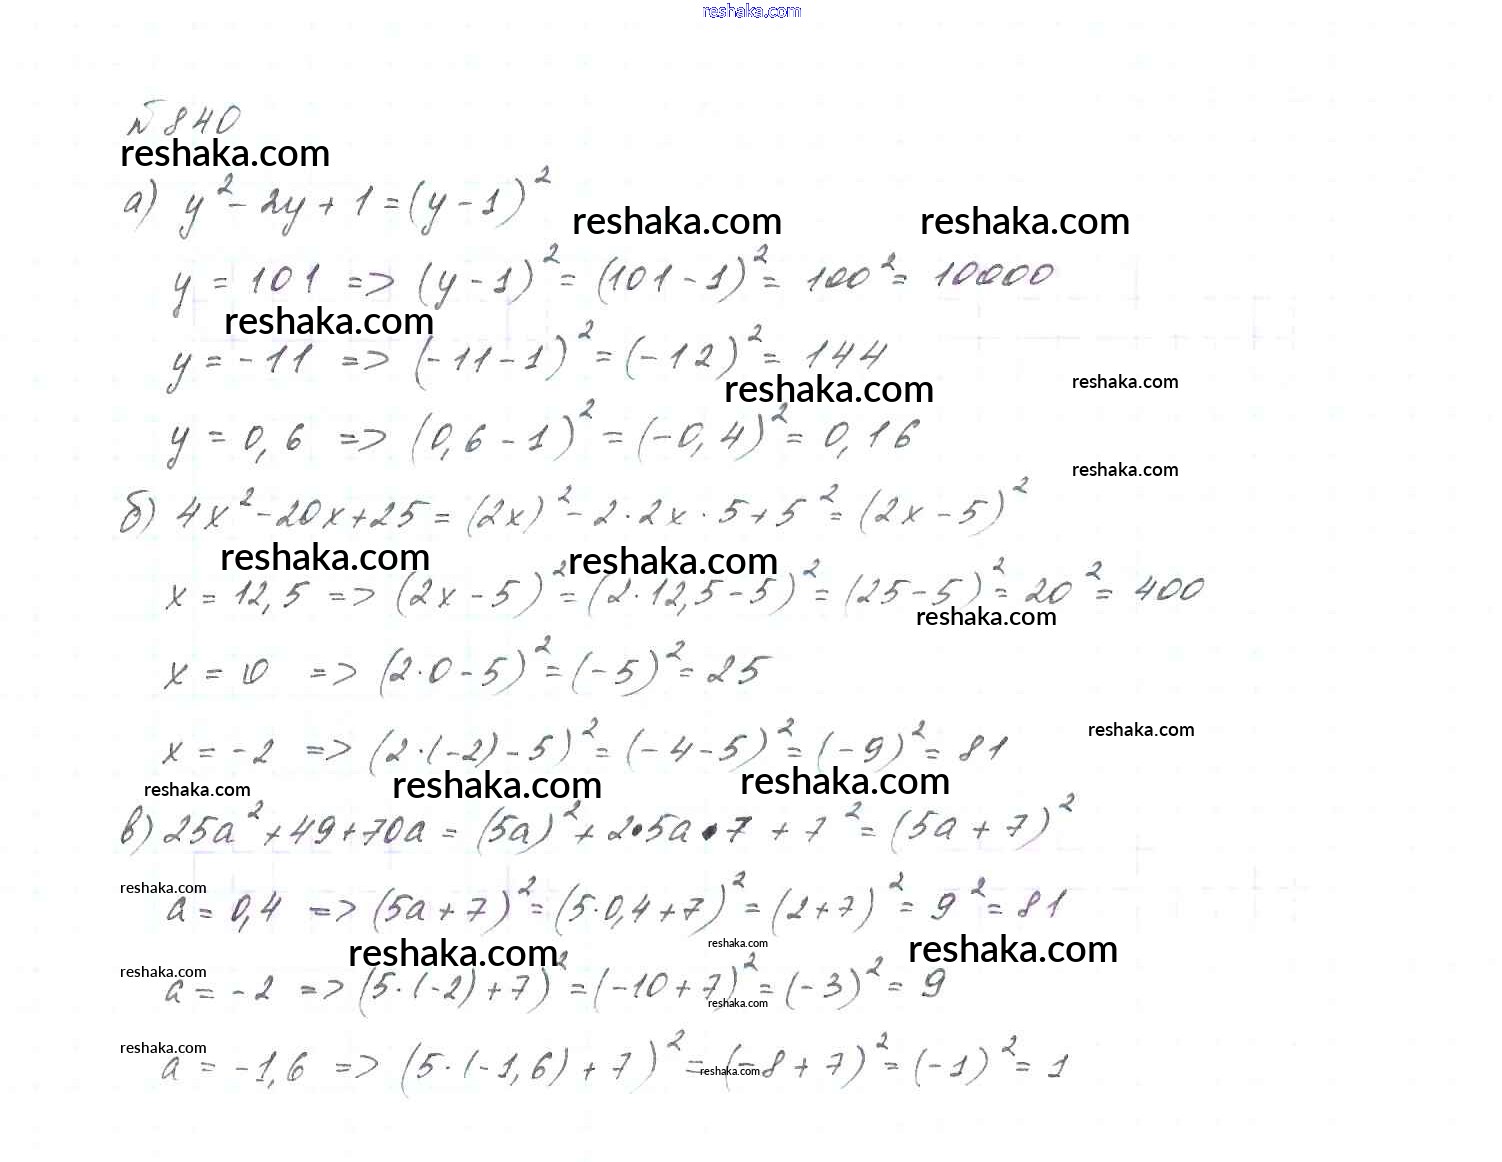 reshaka.com
№840
reshaka.com
а) y² - 2y + 1 = (y - 1)²
reshaka.com reshaka.com
y = 101 => (y - 1)² = (101 - 1)² = 100² = 10000
reshaka.com
y = -11 => (-11 - 1)² = (-12)² = 144
reshaka.com reshaka.com
y = 0,6 => (0,6 - 1)² = (-0,4)² = 0,16
reshaka.com
б) 4x² - 20x + 25 = (2x)² - 2·2x·5 + 5² = (2x - 5)²
reshaka.com reshaka.com
x = 12,5 => (2x - 5)² = (2·12,5 - 5)² = (25 - 5)² = 20² = 400
reshaka.com
x = 0 => (2·0 - 5)² = (-5)² = 25
reshaka.com
x = -2 => (2·(-2) - 5)² = (-4 - 5)² = (-9)² = 81
reshaka.com reshaka.com reshaka.com
в) 25a² + 49 + 70a = (5a)² + 2·5a·7 + 7² = (5a + 7)²
reshaka.com
a = 0,4 => (5a + 7)² = (5·0,4 + 7)² = (2 + 7)² = 9² = 81
reshaka.com reshaka.com reshaka.com
reshaka.com
a = -2 => (5·(-2) + 7)² = (-10 + 7)² = (-3)² = 9
reshaka.com
reshaka.com
a = -1,6 => (5·(-1,6) + 7)² = (-8 + 7)² = (-1)² = 1
reshaka.com